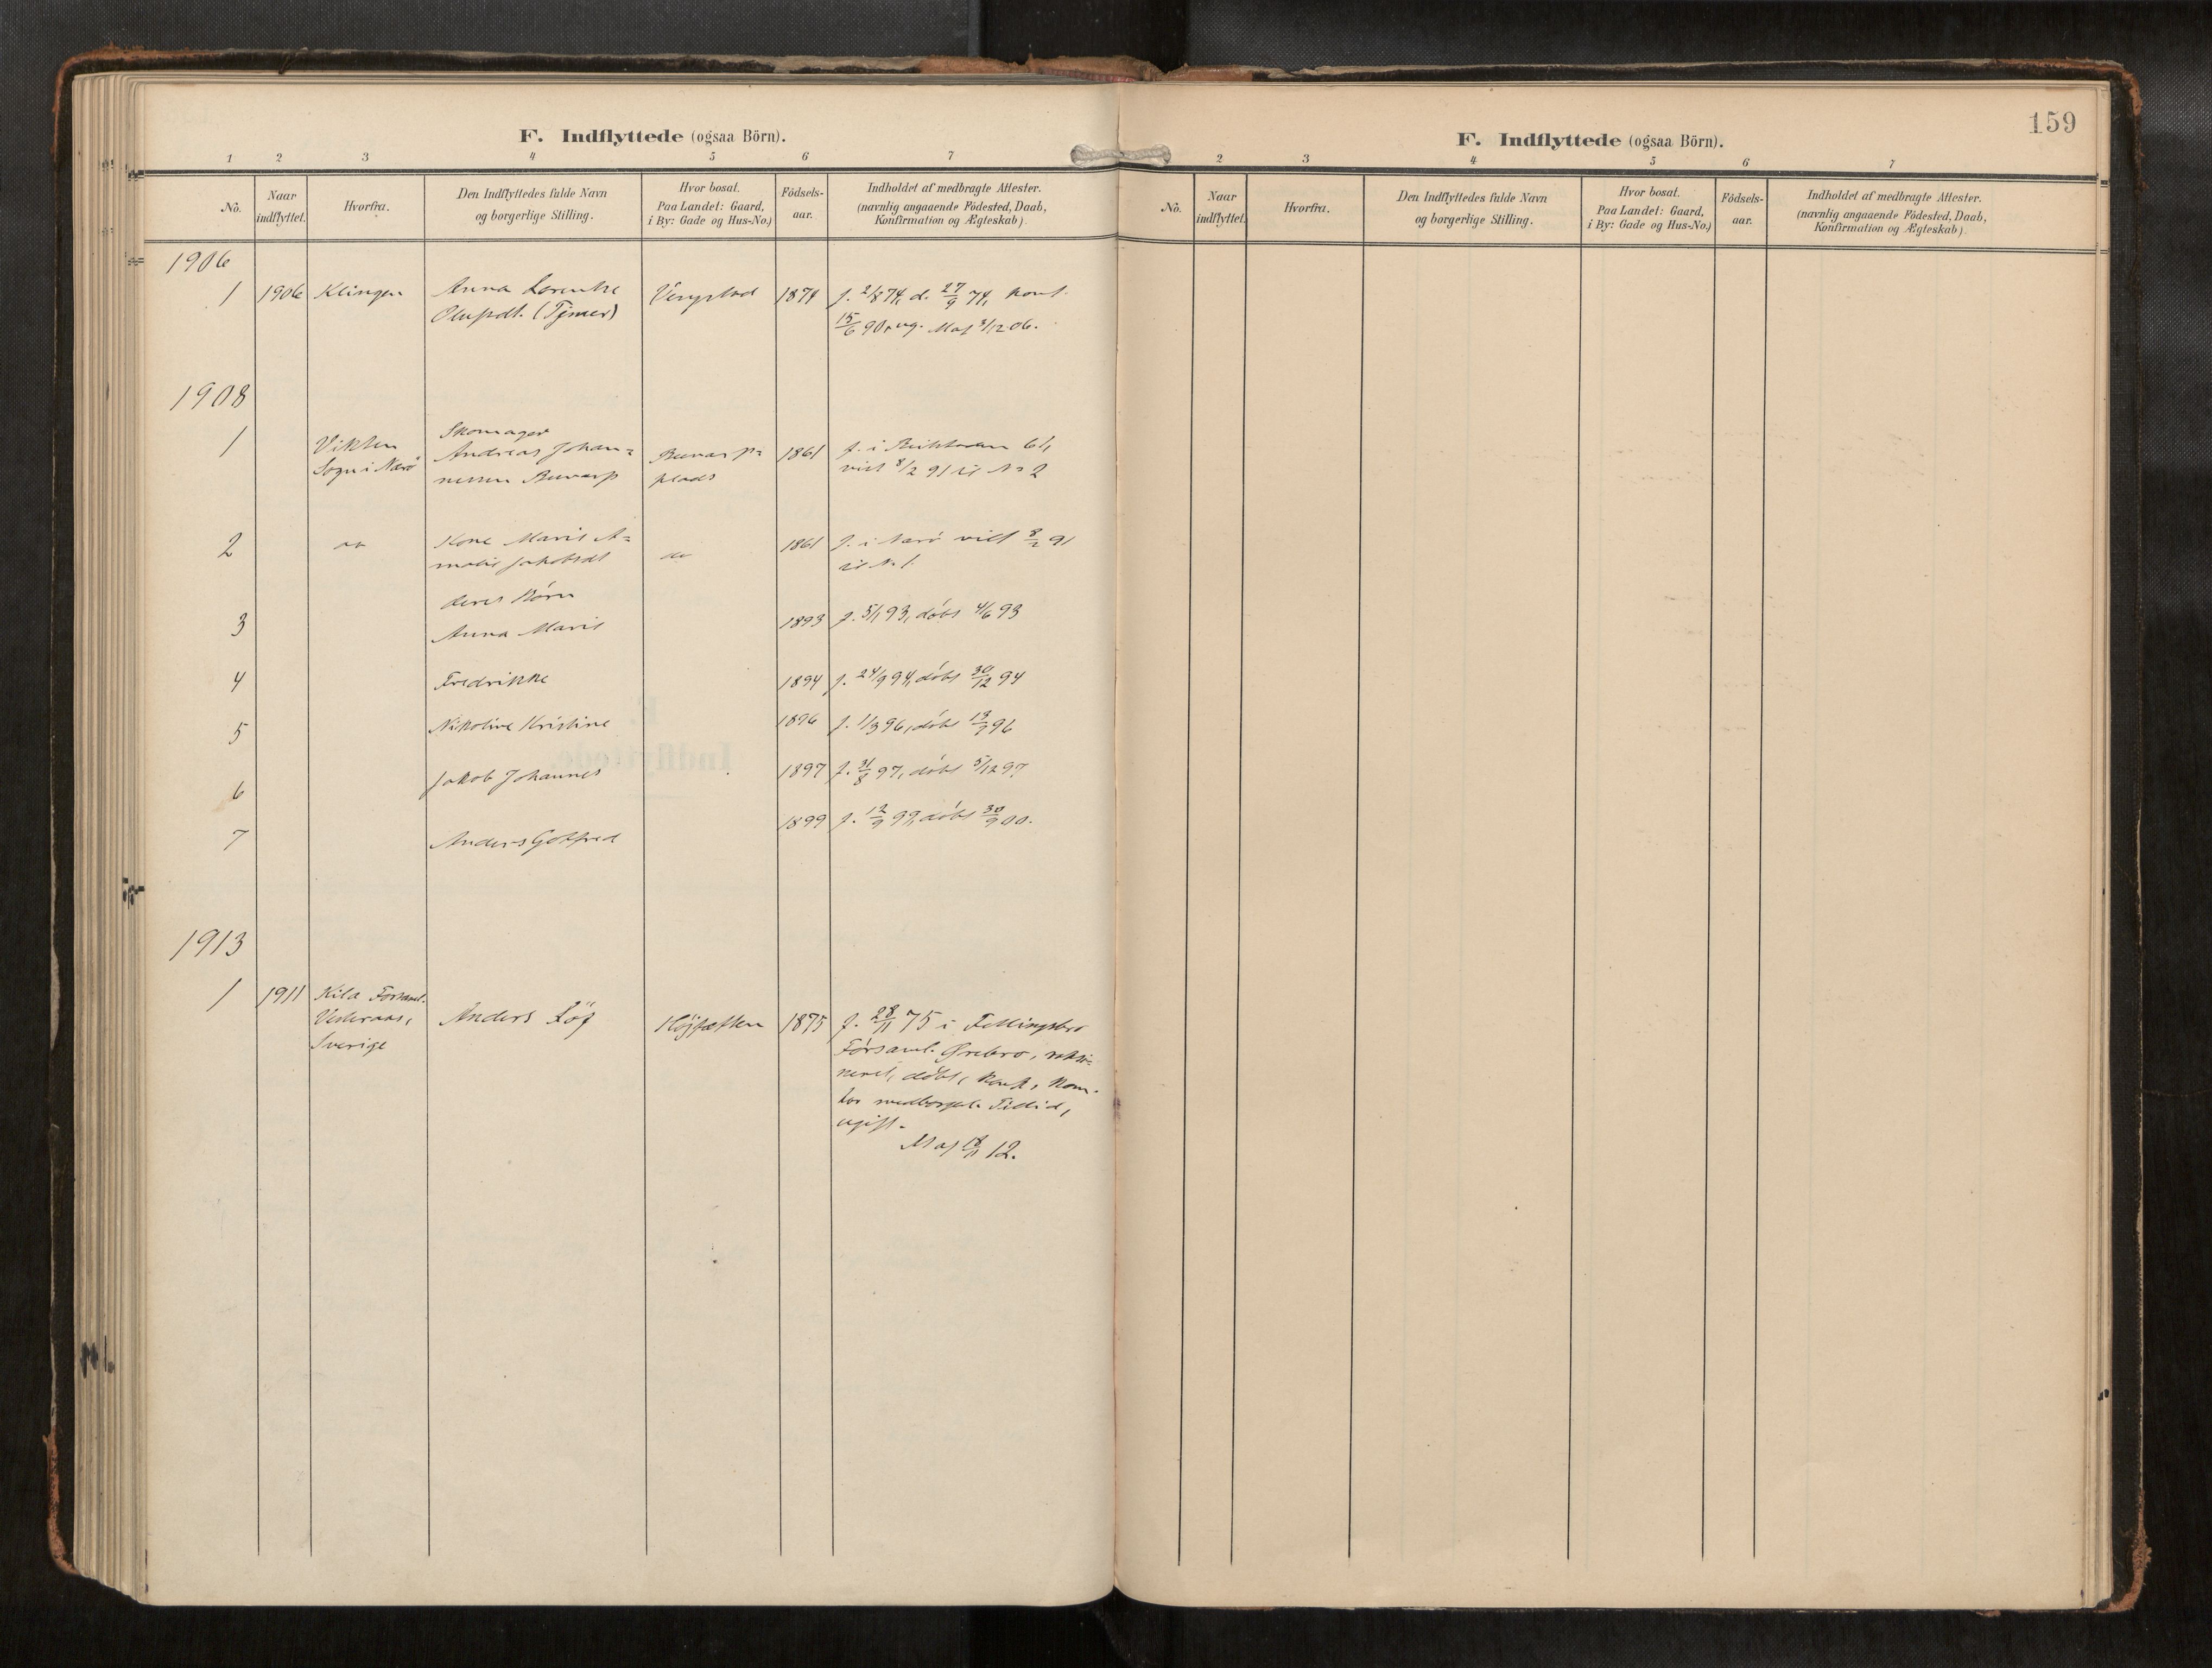 F. Indflyttede (ogsaa Börn).
1 2 3 4 5 6 7
No.
Naar indflyttet.
Hvorfra.
Den Indflyttedes fulde Navn
og borgerlige Stilling.
Hvor bosat.
Paa Landet: Gaard,
i By: Gade og Hus-No.)
Födsels-
aar.
Indholdet af medbragte Attester.
(navnlig angaaende Födested, Daab,
Konfirmation og Ægteskab).
1906
1 1906 Klingen Anna 1874 f. 2/8 74, d. 27/9 74, konf.
15/6 90, ug. 3/12 06.
1908
1 Vikten Skomager 1861 f. i 61,
Sogn i Nærö Andreas Johan=
nessen plads viet 8/2 91 til No 2
2 do Kone Marie A= do 1861 f. i Nærö viet 8/2 91
malie Jakobsdt til No 1.
deres Börn
3 Anna Marie 1893 f. 5/1 93, döbt 4/6 93
4 Fredrikke 1894 f. 24/9 94, döbt 30/12 94
5 Nikoline Kristine 1896 f. 1/3 96, döbt
6 Jakob Johannes 1897 f. 31/8 97, döbt 5/12 97
7 Anders Gotfred 1899 f. 12/9 99, döbt 30/9 00.
1913
1 1911 Kila Forsaml.
Vesteraas,
Sverige
Anders Löf 1875 f. 28/11 75 i Fellingsbro
Församl. Ørebro, vaksi=
neret, döbt, konf.,
Tillid,
ugift.
12.
159
F. Indflyttede (ogsaa Börn).
2 3 4 5 6 7
No.
Naar
indflyttet.
Hvorfra.
Den Indflyttedes fulde Navn
og borgerlige Stilling.
Hvor bosat.
Paa Landet: Gaard,
i By: Gade og Hus-No.)
Födsels-
aar.
Indholdet af medbragte Attester.
(navnlig angaaende Födested, Daab,
Konfirmation og Ægteskab).